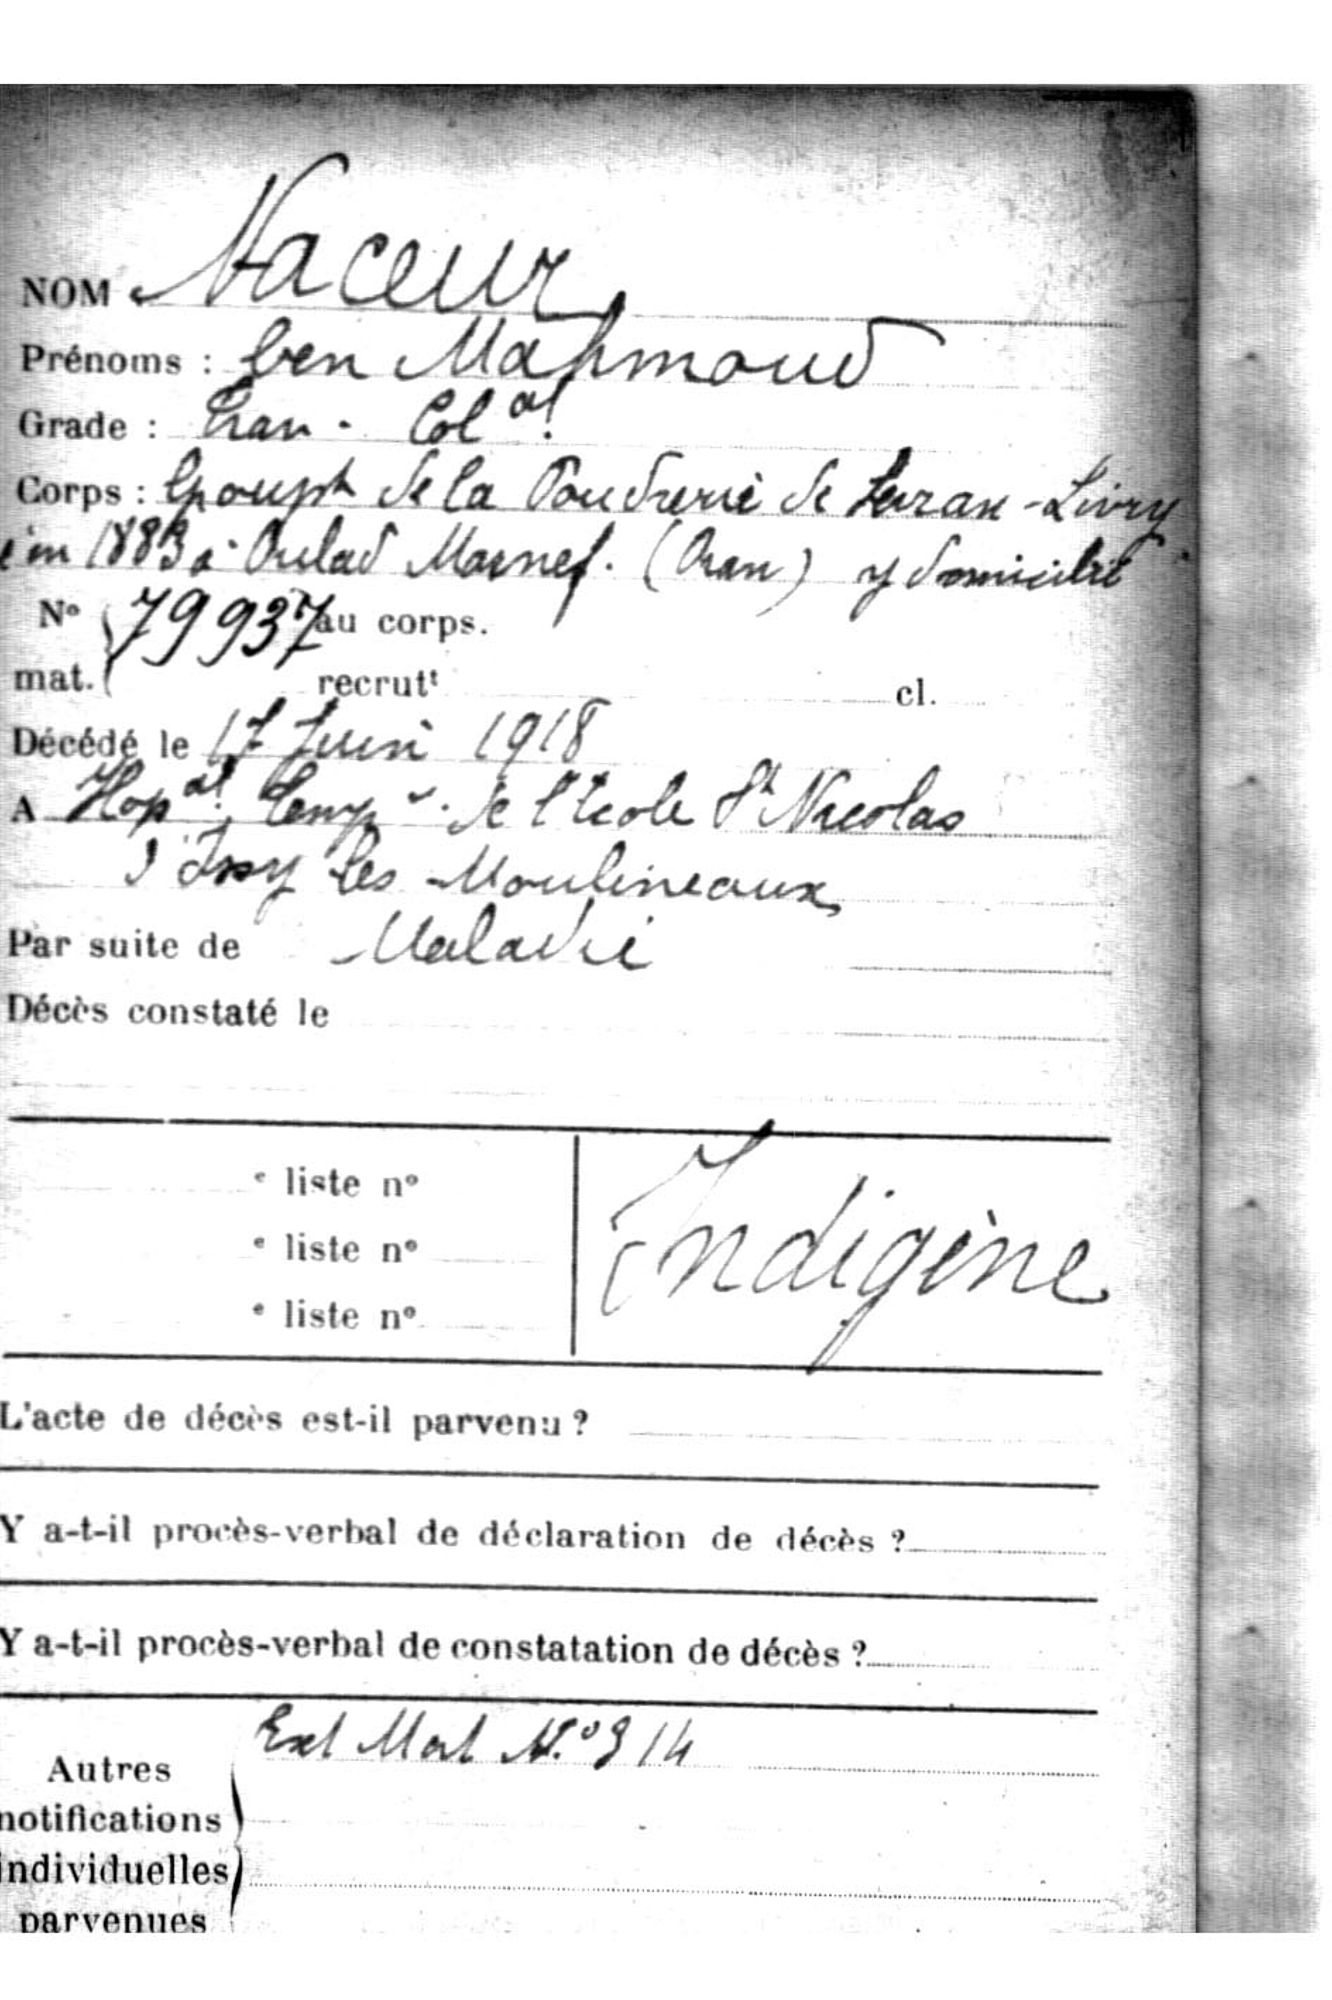 NOM Naceur
Prénoms : ben Mahmoud
Grade : Trav. Col al
Corps : Groupt de la Poudrerie de Sevran-Livry
en 1883 à Oulad (Oran) y domicilié
No 79937 au corps.
mat. recrutt cl.
Décédé le 17 Juin 1918
A Hop al Temp re de l'Ecole St Nicolas
d'Issy les Moulineaux
Par suite de Maladie
Décès constaté le
e liste no
e liste no
e liste no
Indigène
L'acte de décès est-il parvenu ?
Y a-t-il procès-verbal de déclaration de décès ?
Y a-t-il procès-verbal de constatation de décès ?
Ext Mort No 914
Autres
notifications
individuelles
parvenues